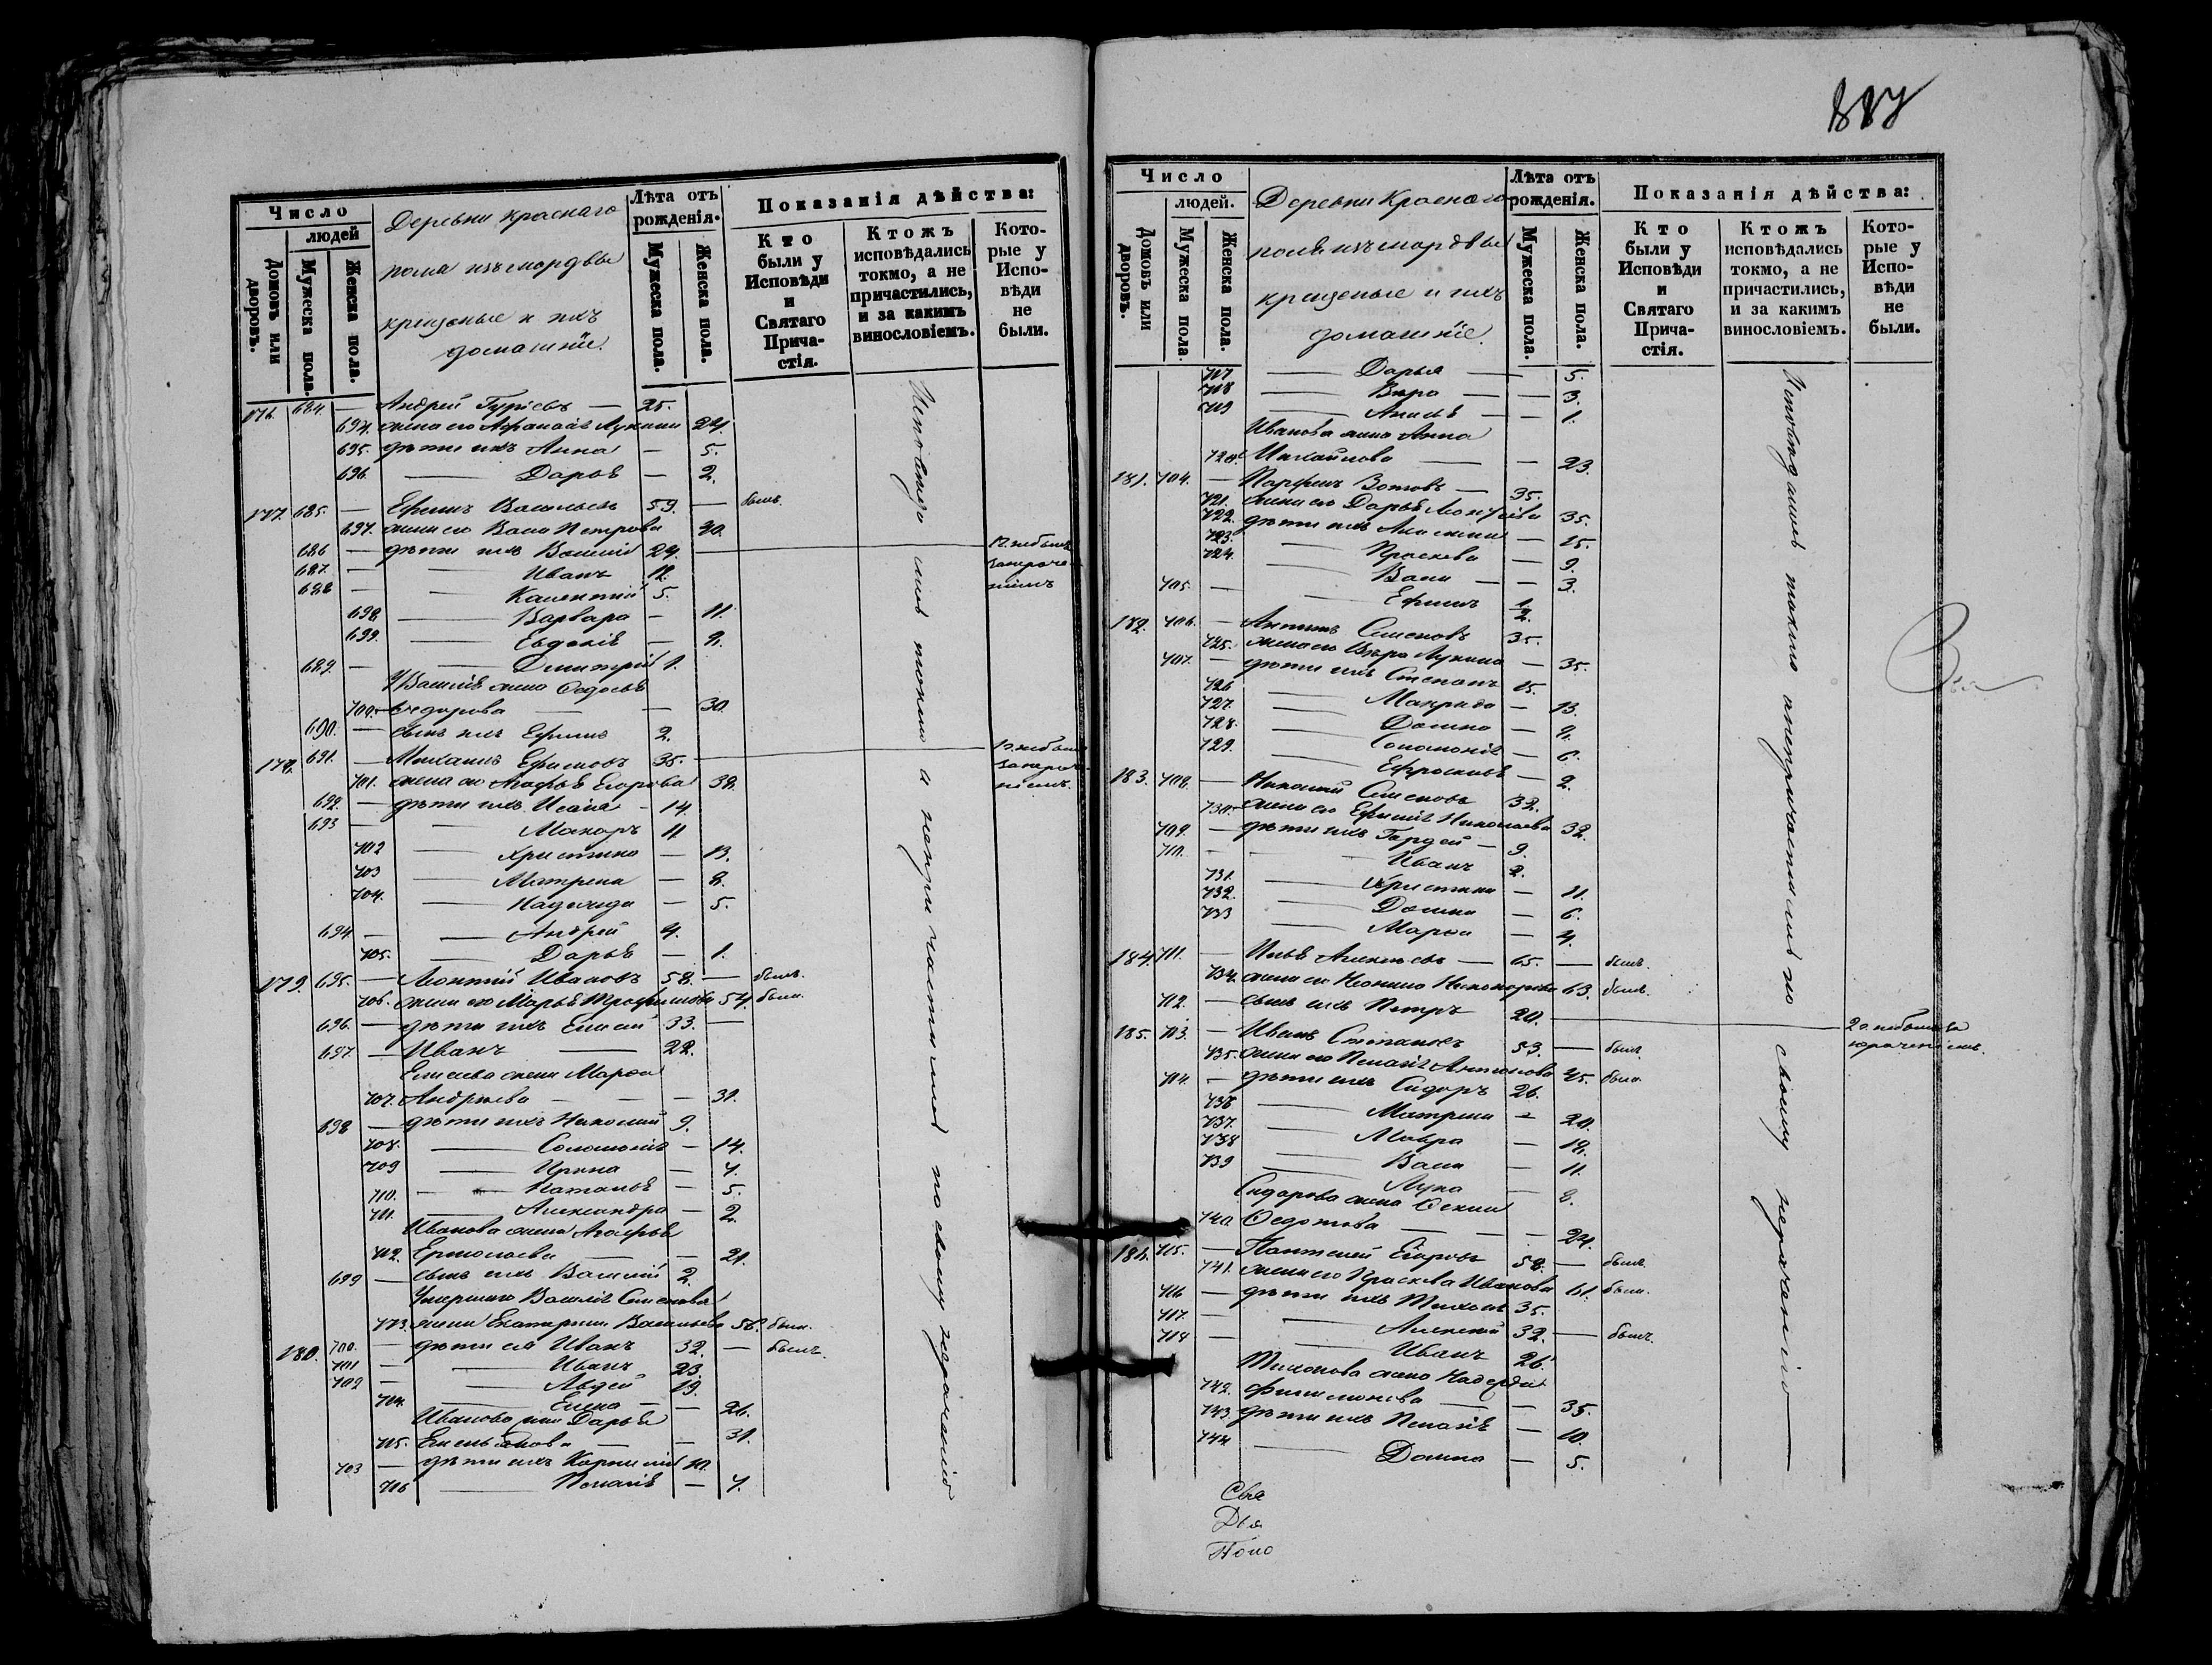 887
Число
людей
Домовъ или дворовъ.
Мужеска пола.
Женска пола.
Деревни Краснаго
поля изъ мордвы
крещеные и ихъ
домашніе.
Лѣта отъ рожденія.
Мужеска пола.
Женска пола.
Показанія дѣйства:
Кто были у Исповѣди и Святаго Прича-стія.
Ктожъ исповѣдались токмо, а не причастились, и за какимъ винословіемъ.
Кото-рые у Испо-вѣди не были.
176. 684. — Андрей Гурьевъ — 25.
694. жена его Афанасія Лукина 24
695. дѣти ихъ Анна — 5.
696. — Дарья — 2.
177. 685. — Ефимъ Васильевъ 59. — былъ
697. жена его Васса Петрова 40.
686 — дѣти ихъ Василій 24.
687. — Иванъ 12.
688 — 5.
698. — Варвара — 11.
699. — Евдокія — 9.
689. — Димитрій 1.
Василія жена Федосья
700. Федорова — 30.
690. — сынъ ихъ Ефимъ 2.
178. 691. — Михаилъ Ефимовъ 35.
701. жена его Агафья Егорова 38.
692. — дѣти ихъ Исаія — 14.
693 — Макаръ 11
702 — Христина — 13.
703 — Матрена — 8.
704. — Надежда — 5.
694 — Андрей 4.
705. — Дарья — 1.
179. 695. — Леонтій Ивановъ 58. — былъ.
706. жена его Марья Трофимова 54. была.
696. — дѣти ихъ Елисей 33. —
697 — Иванъ — 22.
Елисеева жена Марфа
707. Андреева — — 31.
698 — дѣти ихъ Николай 9.
708. — Соломонія — 14.
709 — Ирина — 7.
710. — Наталья — 5.
711. — Александра — 2.
Иванова жена Агафья
712. Ермолаева — — 21.
699 — сынъ ихъ Василій 2.
Умершаго Василія Семенова
713. жена Екатерина Васильева 56. была.
180. 700. — дѣти ея Иванъ 32. — былъ.
701 — Иванъ 23.
702 — Авдей 19.
714. — Елена — 26.
Иванова жена Дарья
715. Емельянова — — 31.
703 — дѣти ихъ Корнилій 10.
716 — Пелагія — 7.
Исповѣдались токмо а не причастились по своему нерачению
Число
людей.
Домовъ или дворовъ.
Мужеска пола.
Женска пола.
Деревни Краснаго
поля изъ мордвы
крещеные и ихъ
домашніе.
Лѣта отъ рожденія.
Мужеска пола.
Женска пола.
Показанія дѣйства:
Кто были у Исповѣди и Святаго Прича-стія.
Ктожъ исповѣдались токмо, а не причастились, и за какимъ винословіемъ.
Кото-рые у Испо-вѣди не были.
717 — Дарья — 5.
718 — Вѣра — — 3.
719 — — 1.
Иванова жена Анна
720. Михайлова — — 23.
181. 704. — Парфенъ Зотовъ — 35.
721. жена его Дарья 35.
722. дѣти ихъ — 15.
723. — Праскева — 9.
724. — Васса — 3.
705. — Ефимъ 1/2.
182. 706. — Антипъ Семеновъ 35.
725. жена его Вѣра Лукина — 35.
707. — дѣти ихъ Степанъ 15.
726 — Макрида — 13.
727. — Домна — 9.
728. — Соломонія — 6.
729. — Ефросинья — 2.
183. 708. — Николай Семеновъ 32.
730. жена его Ефимія Николаева 32.
709. — дѣти ихъ Гордей — 9.
710. — Иванъ 2.
731. — Христина — 11.
732. — Домна — 6.
733 — Марфа — 4.
184. 711. — Илья Алексеевъ — 65. — былъ.
734. жена его Неонила Никанорова 63. была.
712. — сынъ ихъ Петръ 20.
185. 713. — Иванъ Степановъ 53. — былъ.
735. жена его Пелагія Антонова 45. была.
714. — дѣти ихъ Сидоръ 26.
736 — Матрена — 20.
737. — Мавра — 18.
738 — Васса — 11.
739 — Лука — 8.
Сидорова жена Ксенія
740. Федотова — — 24.
186. 715. — Пантелей Егоровъ 58. — былъ.
741. жена его Праскева Иванова 61. была.
716 — дѣти ихъ Тихонъ 35.
717. — Алексей 32. — былъ.
718 — Иванъ 26.
Тихонова жена Надежда
742. Филимонова — — 35.
743. дѣти ихъ Пелагія — 10.
744. — Домна — 5.
Исповѣдались токмо а не причастились по своему нерачению
Свя
Дья
Поно